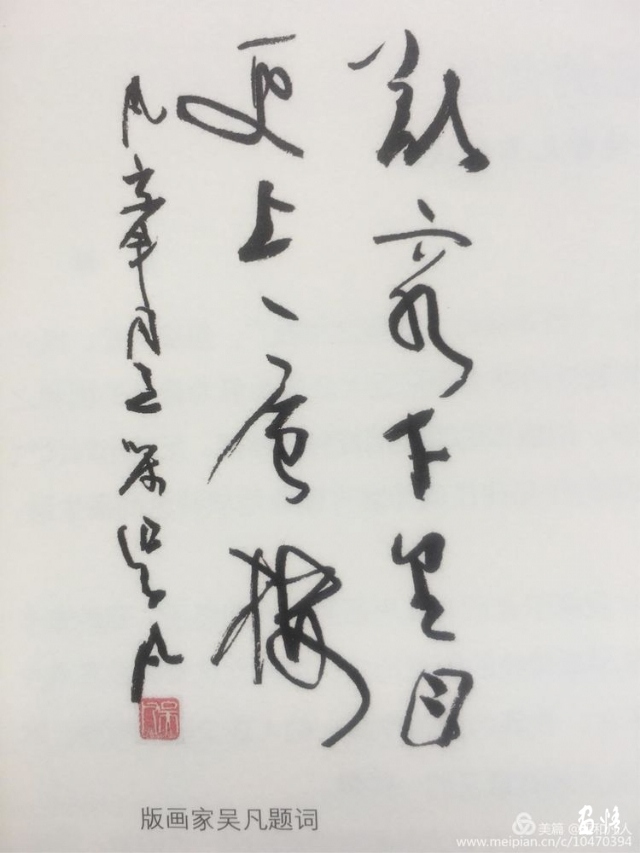 欲窮千里目
更上一層樓
吴凡
版画家吴凡题词
美篇
www.meipian.cn/c/10470394